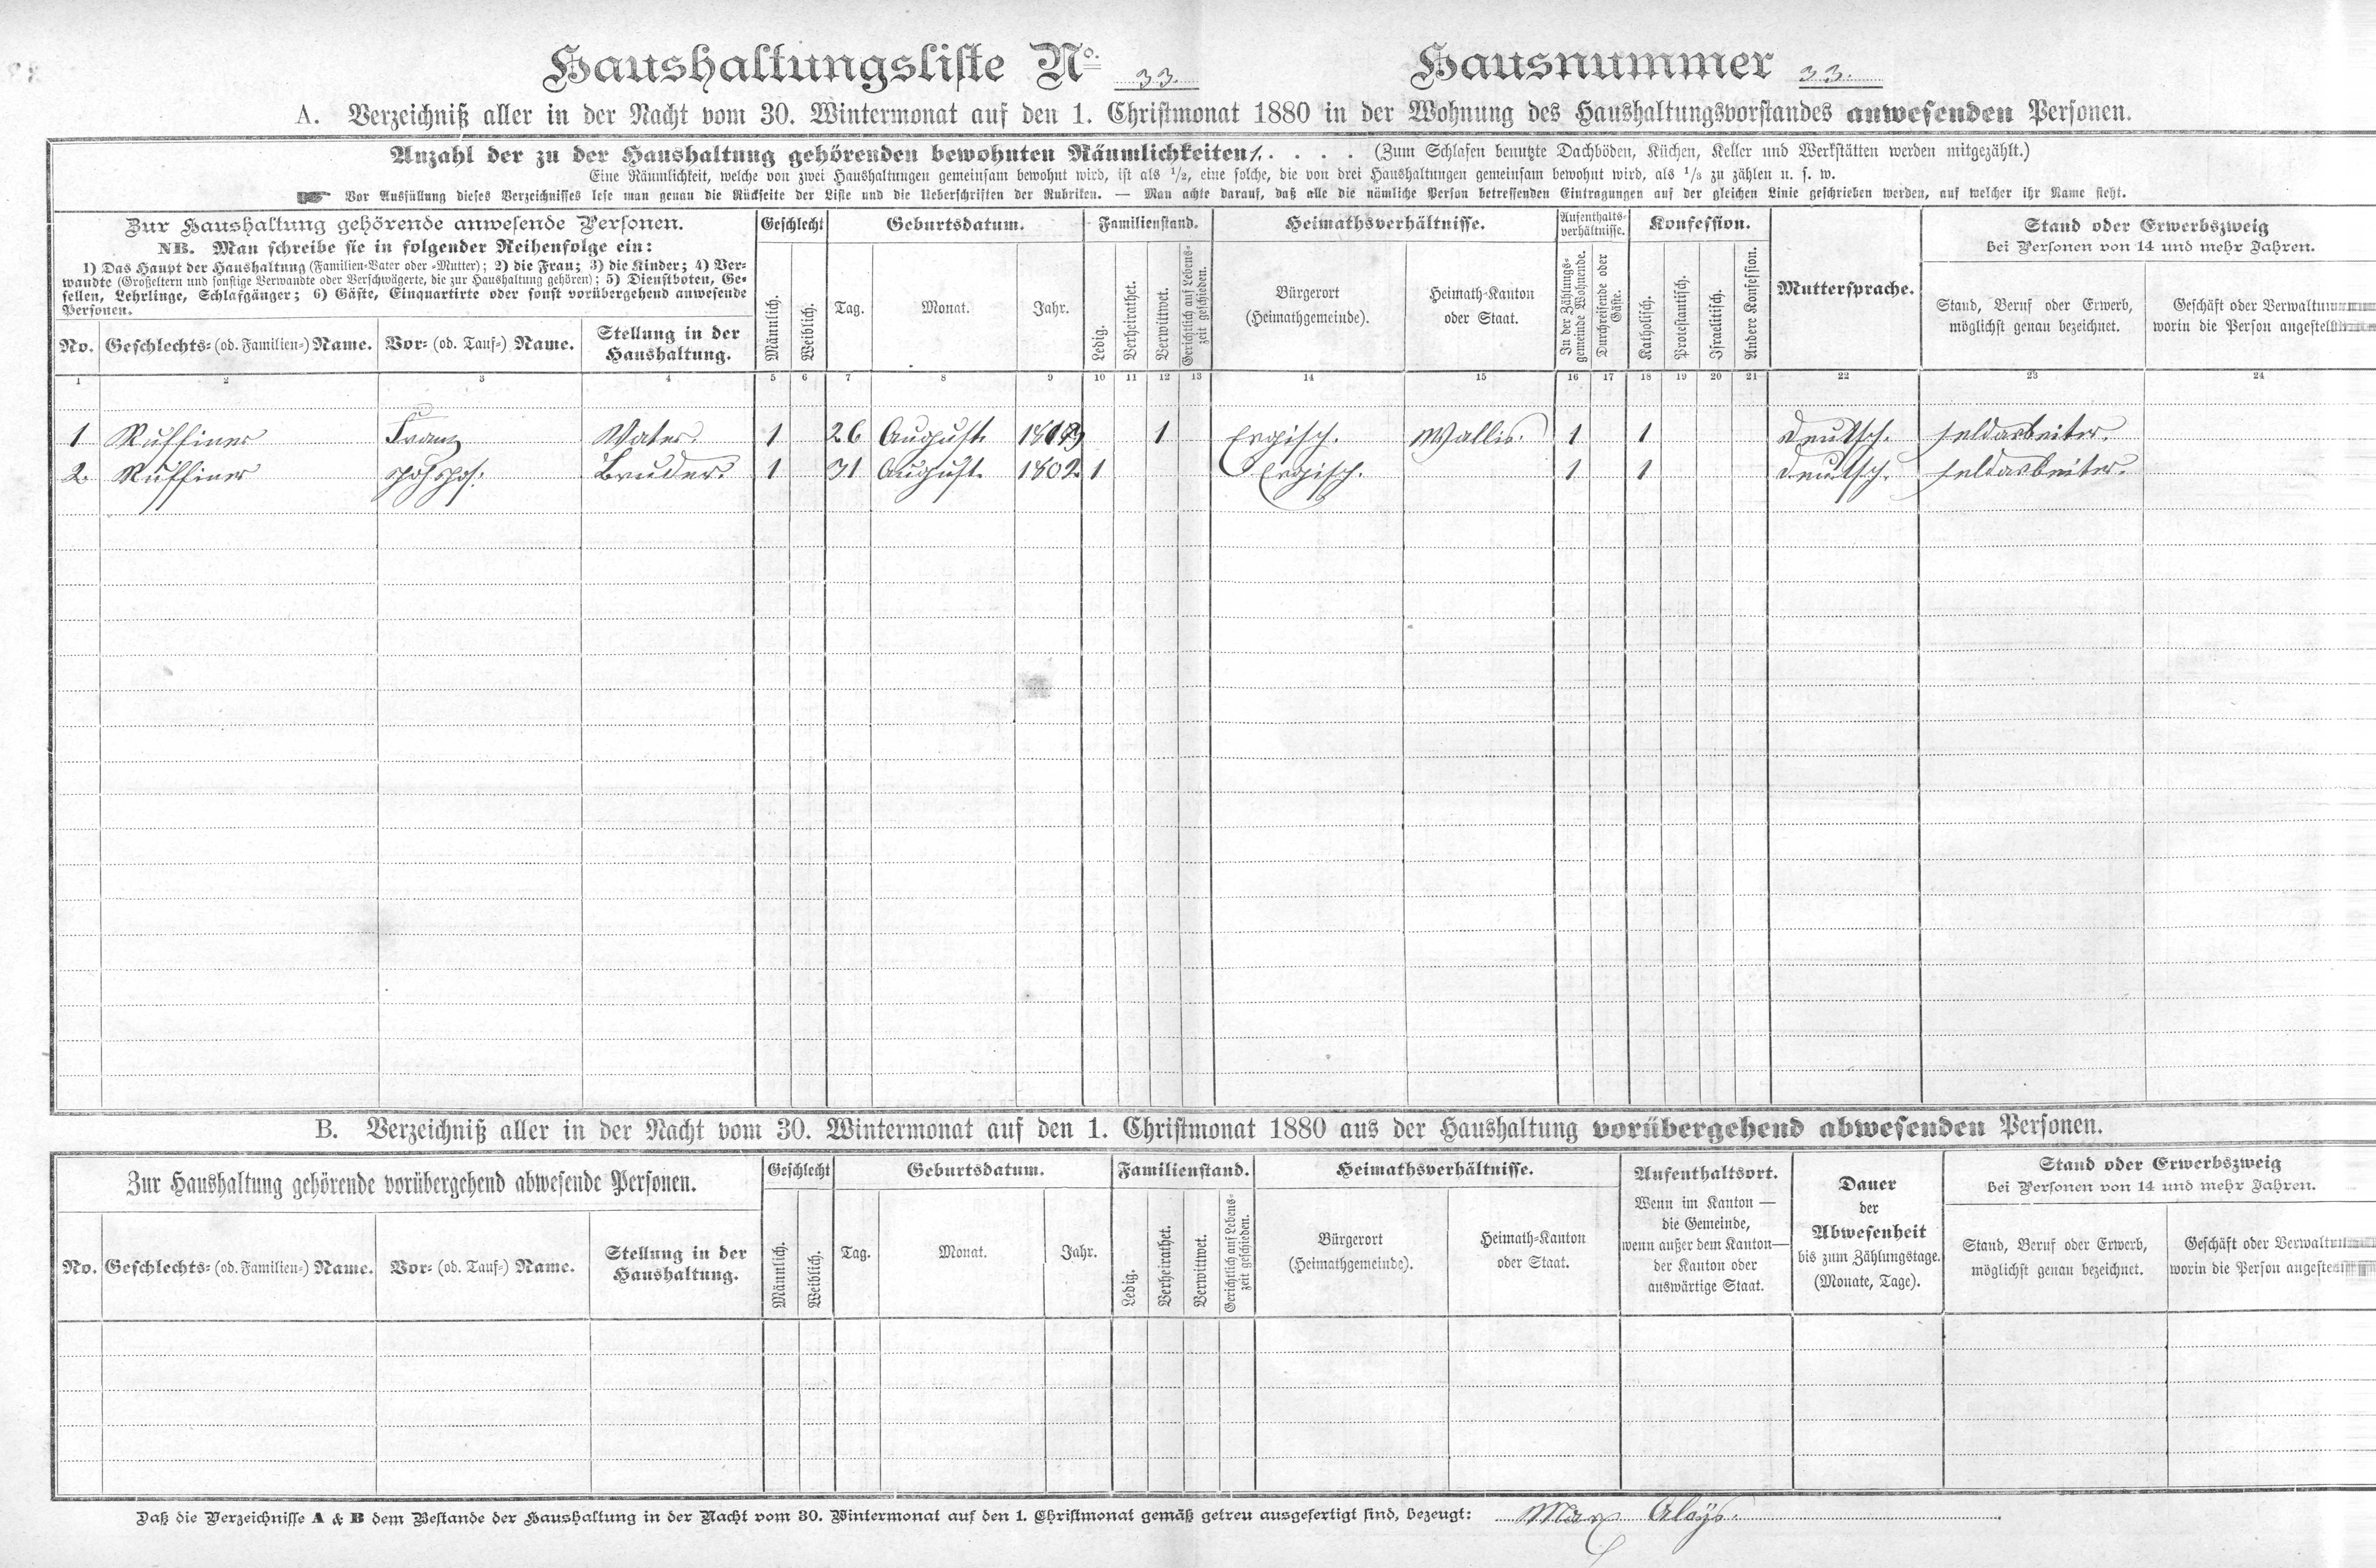 Haushaltungsliste No. 33. Hausnummer 33.
A. Verzeichniß aller in der Nacht vom 30. Wintermonat auf den 1. Christmonat 1880 in der Wohnung des Haushaltungsvorstandes anwesenden Personen.
Anzahl der zu der Haushaltung gehörenden bewohnten Räumlichkeiten 1. . . . . (Zum Schlafen benutzte Dachböden, Küchen, Keller und Werkstätten werden mitgezählt.)
Eine Räumlichkeit, welche von zwei Haushaltungen gemeinsam bewohnt wird, ist als 1/2, eine solche, die von drei Haushaltungen gemeinsam bewohnt wird, als 1/3 zu zählen u. s. w.
Vor Ausfüllung dieses Verzeichnisses lese man genau die Rückseite der Liste und die Ueberschriften der Rubriken. — Man achte darauf, daß alle die nämliche Person betreffenden Eintragungen auf der gleichen Linie geschrieben werden, auf welcher ihr Name steht.
Zur Haushaltung gehörende anwesende Personen.
NB. Man schreibe sie in folgender Reihenfolge ein:
1) Das Haupt der Haushaltung (Familien-Vater oder -Mutter); 2) die Frau; 3) die Kinder; 4) Ver-
wandte (Großeltern und sonstige Verwandte oder Verschwägerte, die zur Haushaltung gehören); 5) Dienstboten, Ge-
sellen, Lehrlinge, Schlafgänger; 6) Gäste, Einquartirte oder sonst vorübergehend anwesende
Personen.
No. Geschlechts- (od. Familien-) Name. Vor- (od. Tauf-) Name. Stellung in der
Haushaltung.
Geschlecht
Männlich. Weiblich.
Geburtsdatum.
Tag. Monat. Jahr.
Familienstand.
Ledig. Verheirathet. Verwittwet. Gerichtlich auf Lebens-
zeit geschieden.
Heimathsverhältnisse.
Bürgerort
(Heimathgemeinde).
Heimath-Kanton
oder Staat.
Aufenthalts-
verhältnisse.
In der Zählungs-
gemeinde Wohnende.
Durchreisende oder
Gäste.
Konfession.
Katholisch. Protestantisch. Israelitisch. Andere Konfession.
Muttersprache.
Stand oder Erwerbszweig
bei Personen von 14 und mehr Jahren.
Stand, Beruf oder Erwerb,
möglichst genau bezeichnet.
Geschäft oder
worin die Person
1 2 3 4 5 6 7 8 9 10 11 12 13 14 15 16 17 18 19 20 21 22 23 24
1 Ruffiner Franz Vater. 1 26 August. 1 Ergisch. Wallis. 1 1 deutsch. feldarbeiter.
2. Ruffiner Bruder. 1 31 August. 1802. 1 Ergisch. 1 1 deutsch. feldarbeiter.
B. Verzeichniß aller in der Nacht vom 30. Wintermonat auf den 1. Christmonat 1880 aus der Haushaltung vorübergehend abwesenden Personen.
Zur Haushaltung gehörende vorübergehend abwesende Personen.
No. Geschlechts- (od. Familien-) Name. Vor- (od. Tauf-) Name. Stellung in der
Haushaltung.
Geschlecht
Männlich. Weiblich.
Geburtsdatum.
Tag. Monat. Jahr.
Familienstand.
Ledig. Verheirathet. Verwittwet. Gerichtlich auf Lebens-
zeit geschieden.
Heimathsverhältnisse.
Bürgerort
(Heimathgemeinde).
Heimath-Kanton
oder Staat.
Aufenthaltsort.
Wenn im Kanton —
die Gemeinde,
wenn außer dem Kanton—
der Kanton oder
auswärtige Staat.
Dauer
der
Abwesenheit
bis zum Zählungstage.
(Monate, Tage).
Stand oder Erwerbszweig
bei Personen von 14 und mehr Jahren.
Stand, Beruf oder Erwerb,
möglichst genau bezeichnet.
Geschäft oder
worin die Person
Daß die Verzeichnisse A & B dem Bestande der Haushaltung in der Nacht vom 30. Wintermonat auf den 1. Christmonat gemäß getreu ausgefertigt sind, bezeugt: Marx Aloÿs.